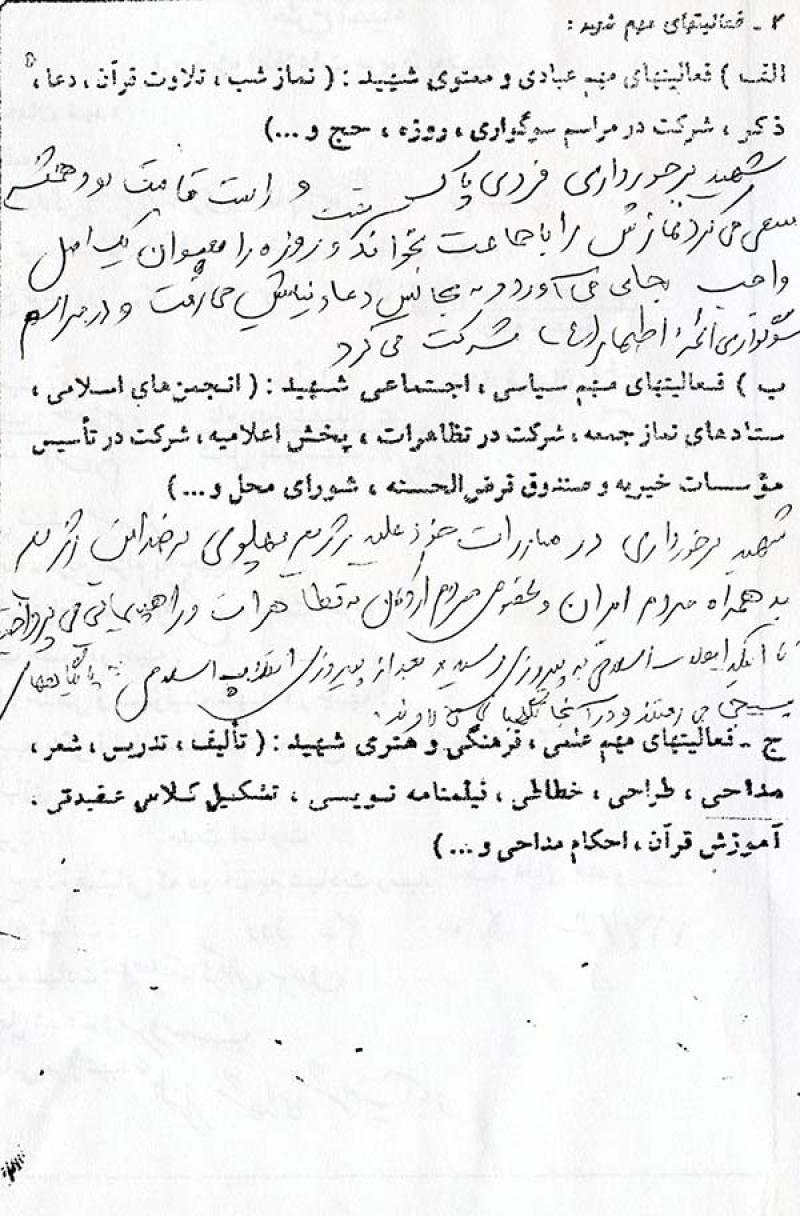 ۲ ـ فعالیتهای مهم شهید :
الف ) فعالیتهای مهم عبادی و معنوی شهید : ( نماز شب ، تلاوت قرآن ، دعا ،
ذکر ، شرکت در مراسم سوگواری ، روزه ، حج و ...)
شهید برخورداری فردی پاک و راست قامت بود و همیشه
سعی می کرد نمازش را با جماعت بخواند و روزه را بعنوان یک اصل
واجب بجای می آورد و به مجالس دعا و نیایش می رفت و در مراسم
سوگواری ائمه اطهار (ع) شرکت می کرد
ب ) فعالیتهای مهم سیاسی ، اجتماعی شهید : ( انجمن های اسلامی ،
ستادهای نماز جمعه ، شرکت در تظاهرات ، پخش اعلامیه ، شرکت در تأسیس
مؤسسات خیریه و صندوق قرض الحسنه ، شورای محل و ...)
شهید برخورداری در مبارزات خود علیه رژیم پهلوی بر ضد این رژیم
به همراه مردم ایران و بخصوص مردم اردکان به تظاهرات و راهپیمایی می پرداخت
تا اینکه انقلاب اسلامی به پیروزی رسید و بعد از پیروزی انقلاب اسلامی به پایگاههای
بسیج می رفتند و در آنجا نگهبانی می دادند .
ج ـ فعالیتهای مهم علمی ، فرهنگی و هنری شهید : ( تألیف ، تدریس ، شعر ،
مداحی ، طراحی ، خطاطی ، فیلمنامه نویسی ، تشکیل کلاس عقیدتی ،
آموزش قرآن ، احکام مداحی و ...)